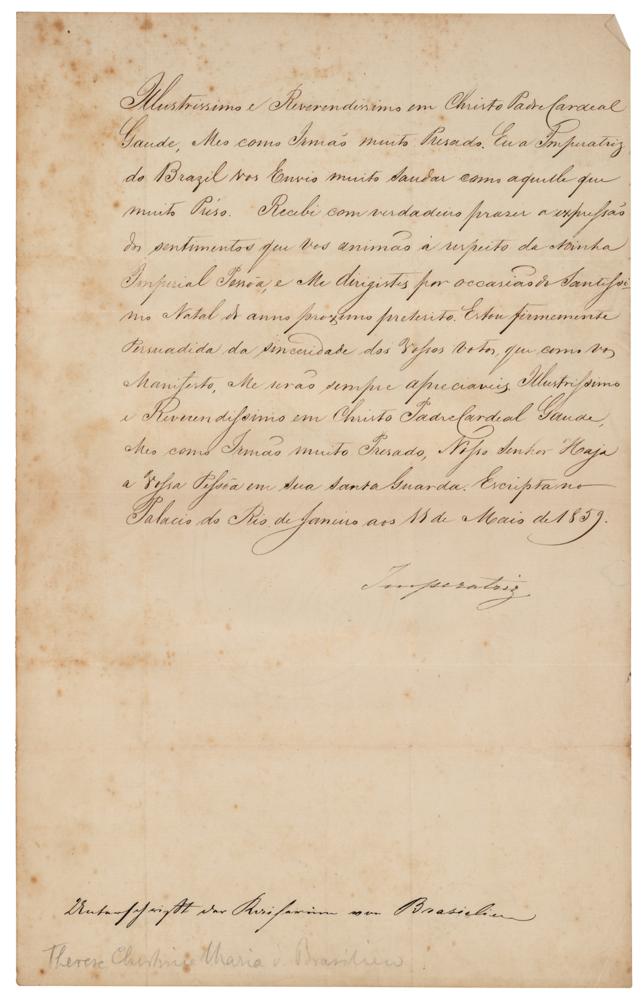 Illustrissimo e Reverendissimo em Christo Padre Cardeal
Gaude, Meo como Irmão muito Presado. Eu a Imperatriz
do Brazil vos Envio muito saudar como aquelle que
muito Préso. Recebi com verdadeiro prazer a expressão
dos sentimentos que vos animão á respeito da Minha
Imperial Pessôa, e Me dirigistes por occasião do Santissi-
mo Natal do anno proximo preterito. Estou firmemente
Persuadida da sinceridade dos Vossos votos, que como vos
Manifesto, Me serão sempre apreciaveis, Illustrissimo
e Reverendissimo em Christo Padre Cardeal Gaude,
Meo como Irmão muito Presado, Nosso Senhor Haja
a Vossa Pessôa em Sua Santa Guarda. Escripta no
Palacio do Rio de Janeiro aos de Maio de 1859.
Imperatriz
Unterschrift der Kaiserinn von Brasilien
Therese Christine Maria v. Brasilien